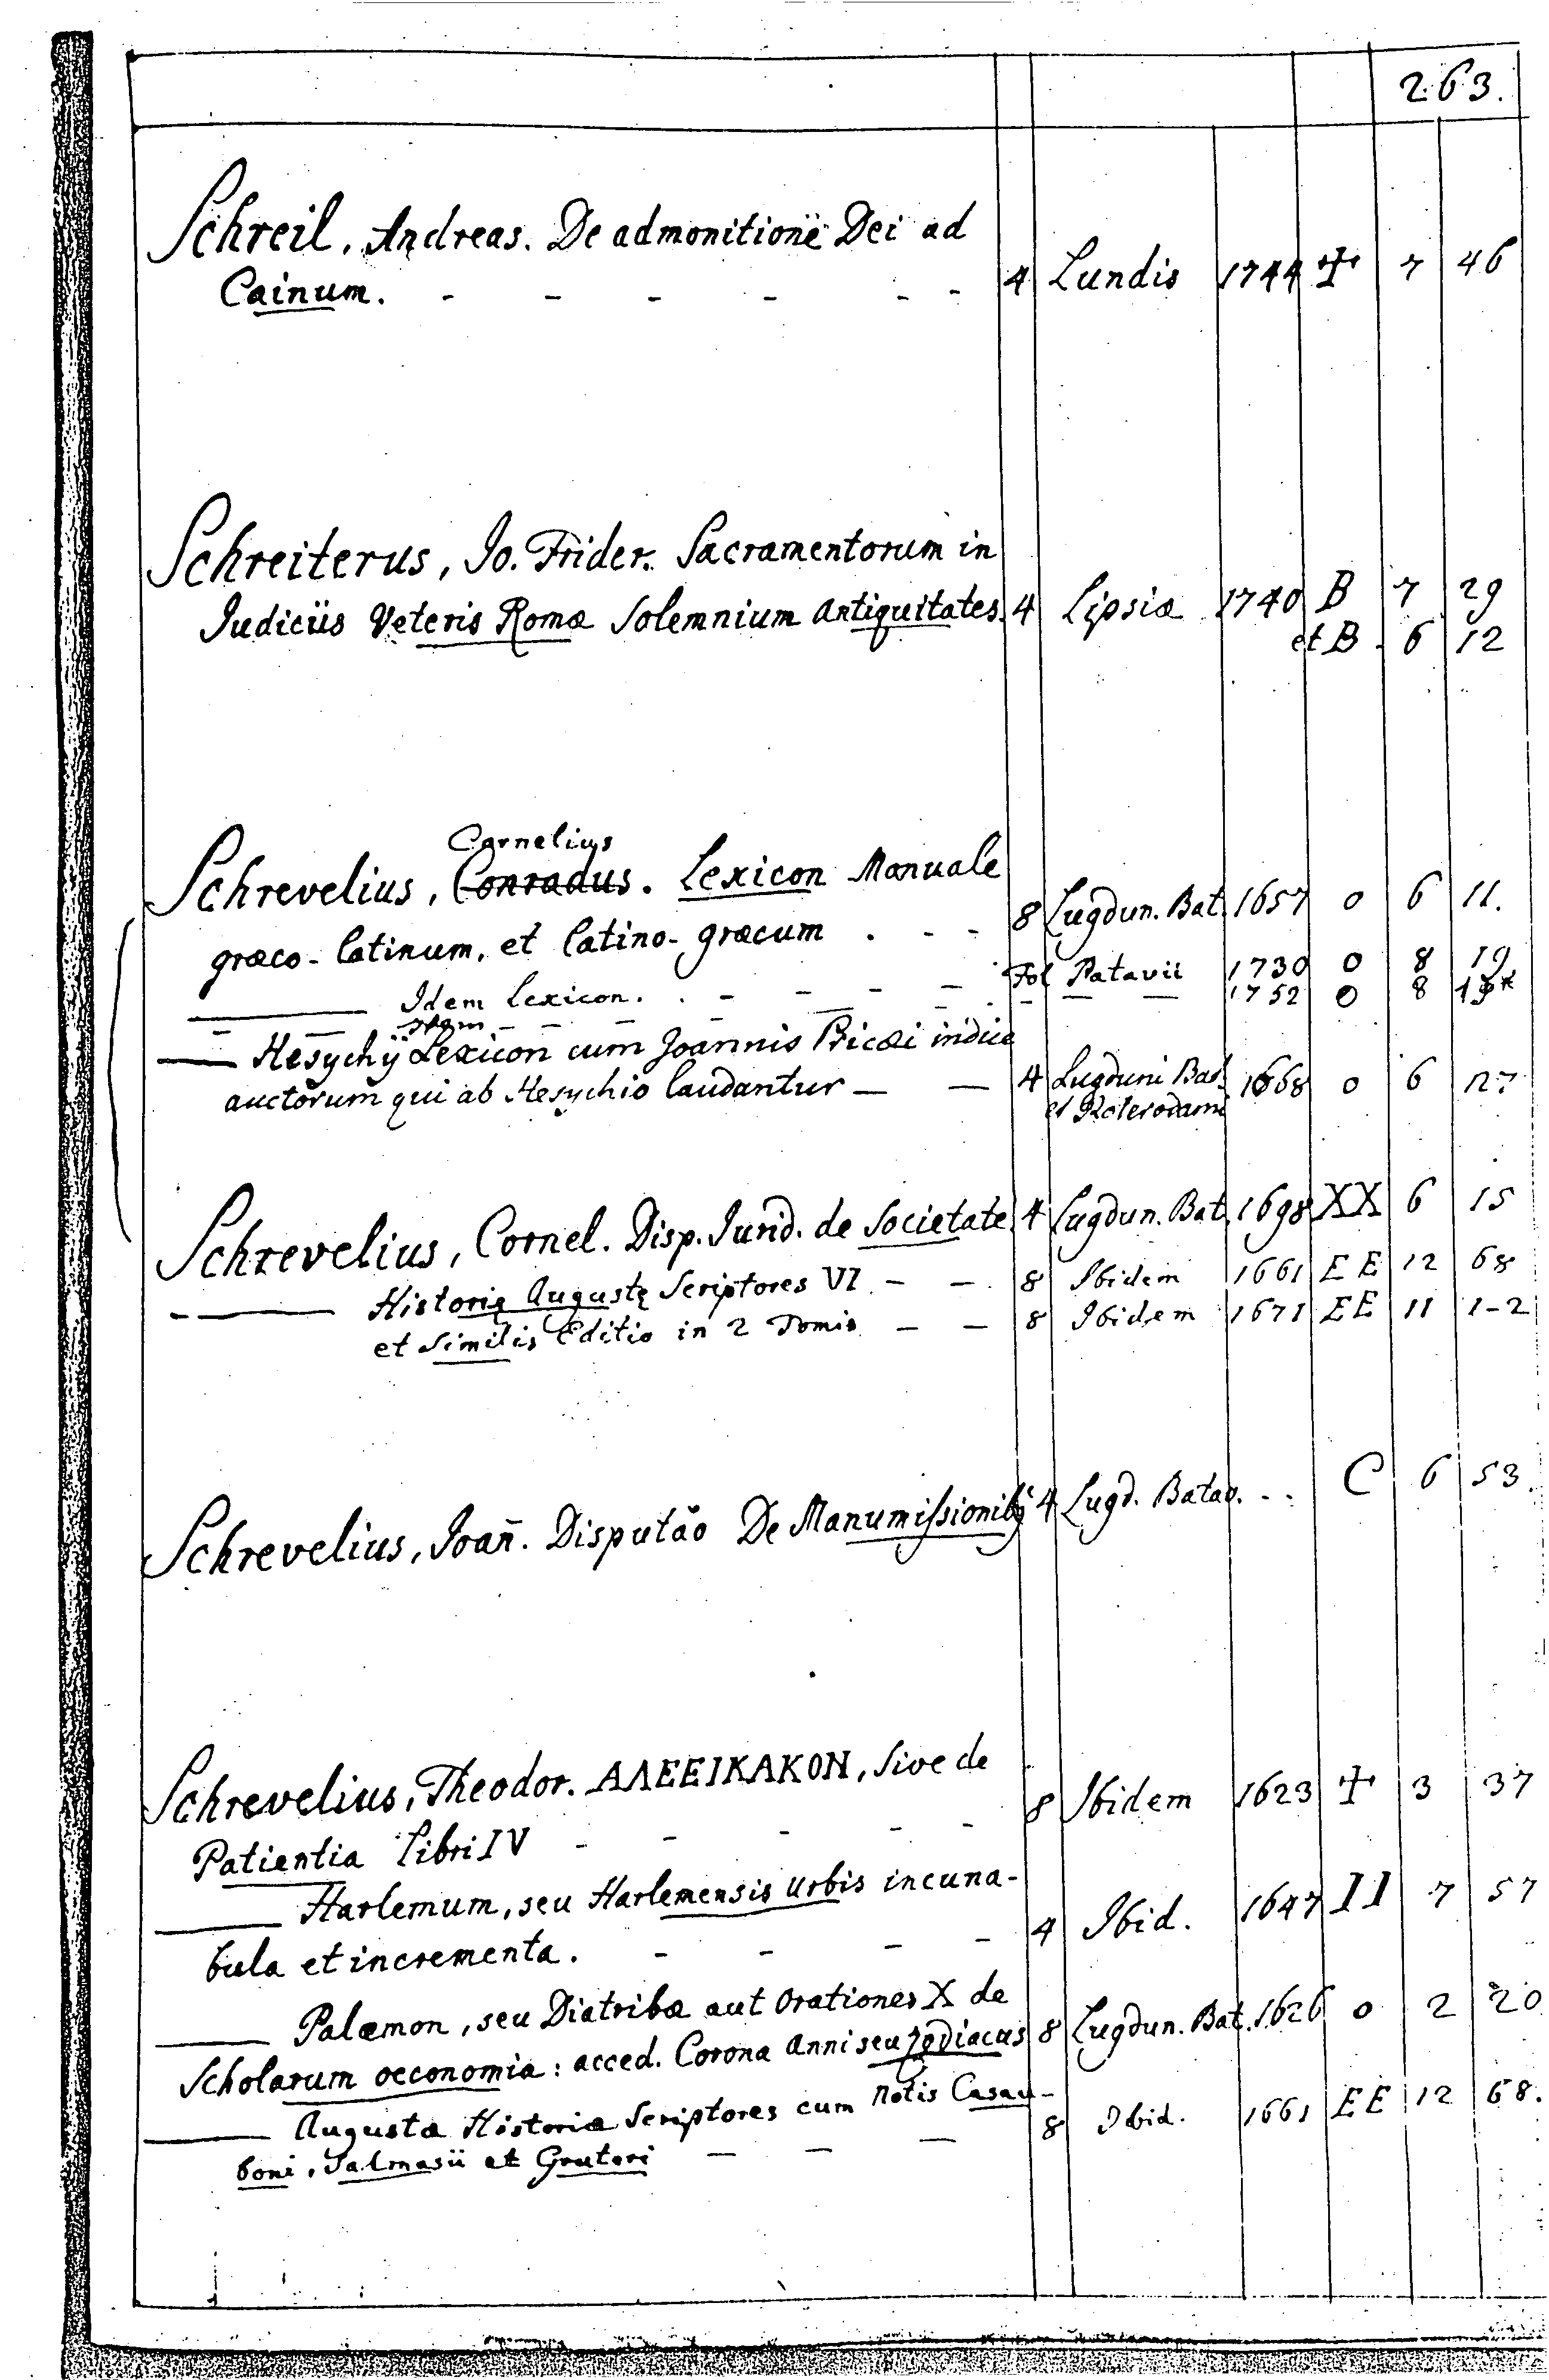 263.
Schreil, Andreas. De admonitione Dei ad
Cainum. - - - - - - 4 Lundis 1744 ☩ 7 46
Schreiterus, Jo. Frider. Sacramentorum in
Judiciis Veteris Romæ Solemnium Antiquitates. 4 Lipsiæ 1740 B 7 29
et B. 6 12
Cornelius
Schrevelius, Conradus. Lexicon Manuale
græco-latinum, et latino-græcum . - - 8 Lugdun. Bat. 1657 O 6 11.
Idem Lexicon. . - - - - - Fol Patavii 1730 O 8 19
— — — — — — — — — 1752 O 8 19*
— Hesychÿ Lexicon cum Joannis Pricæi indice
auctorum qui ab Hesychio laudantur — — 4 Lugduni Bat. 1668 O 6 27
et Roterodami
Schrevelius, Cornel. Disp. Jurid. de Societate 4 Lugdun. Bat. 1698 XX 6 15
— Historię Augustę Scriptores VI - - 8 Ibidem 1661 EE 12 68
et Similis Editio in 2 Tomis - - 8 Ibidem 1671 EE 11 1-2
Schrevelius, Joan̄. Disputāo De Manumissionibꝫ 4 Lugd. Batav. . . C 6 53.
Schrevelius, Theodor. AΛEEIKAKON, Sive de
Patientia Libri IV - - - - - 8 Ibidem 1623 ☩ 3 37
— Harlemum, seu Harlemensis Urbis incuna-
bula et incrementa. - - - - 4 Ibid. 1647 II 7 57
— Palæmon, seu Diatribæ aut Orationes X de
Scholarum oeconomia: acced. Corona Anni seu Zodiacus 8 Lugdun. Bat. 1626 O 2 20
— Augustæ Historiæ Scriptores cum Notis Casau-
boni, Salmasii et Gruteri — — — 8 Ibid. 1661 EE 12 68.